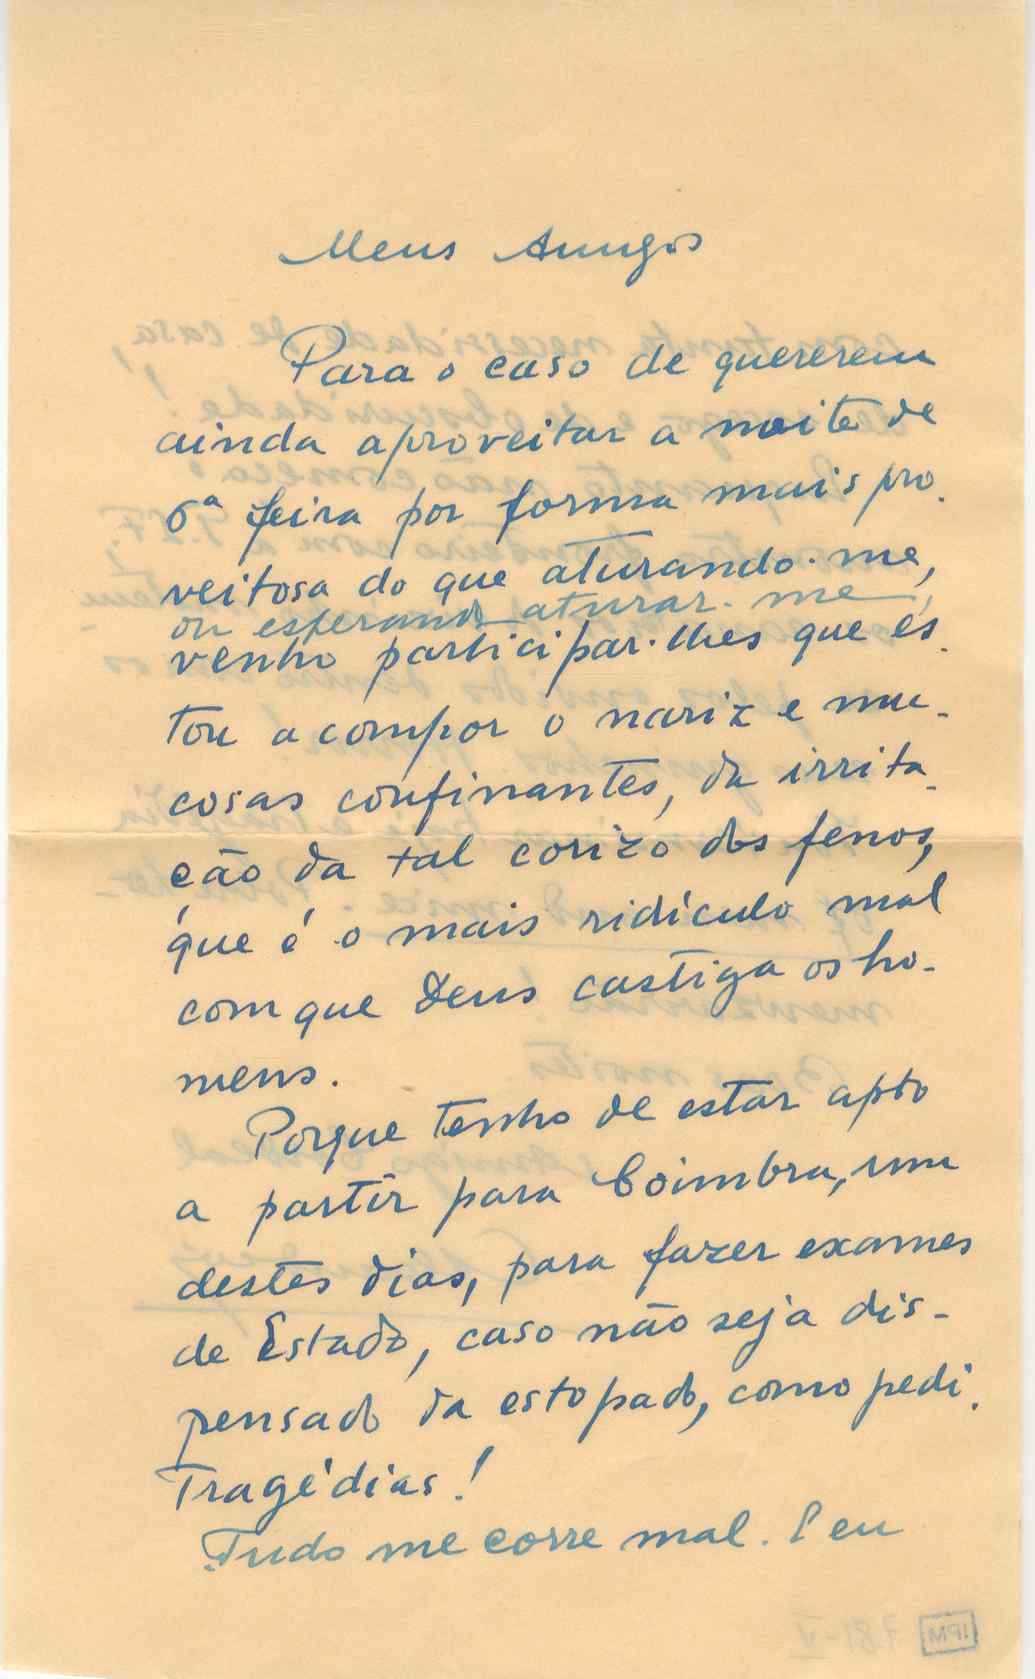 Meus Amigos
Para o caso de quererem
ainda aproveitar a noite de
6ª feira por forma mais pro-
veitosa do que aturando-me,
ou esperando aturar-me,
venho participar-lhes que es-
tou a compor o nariz e mu-
cosas confinantes, da irrita-
ção da tal corizo dos fenos,
que é o mais ridículo mal
com que Deus castiga os ho-
mens.
Porque tenho de estar apto
a partir para Coimbra, um
destes dias, para fazer exames
de Estado, caso não seja dis-
pensado da estopado, como pedi.
Tragédias!
Tudo me corre mal. E eu
IPM